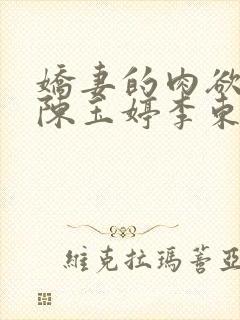 嬌妻的肉欲
陳玉婷李東
維克拉瑪蓍亞